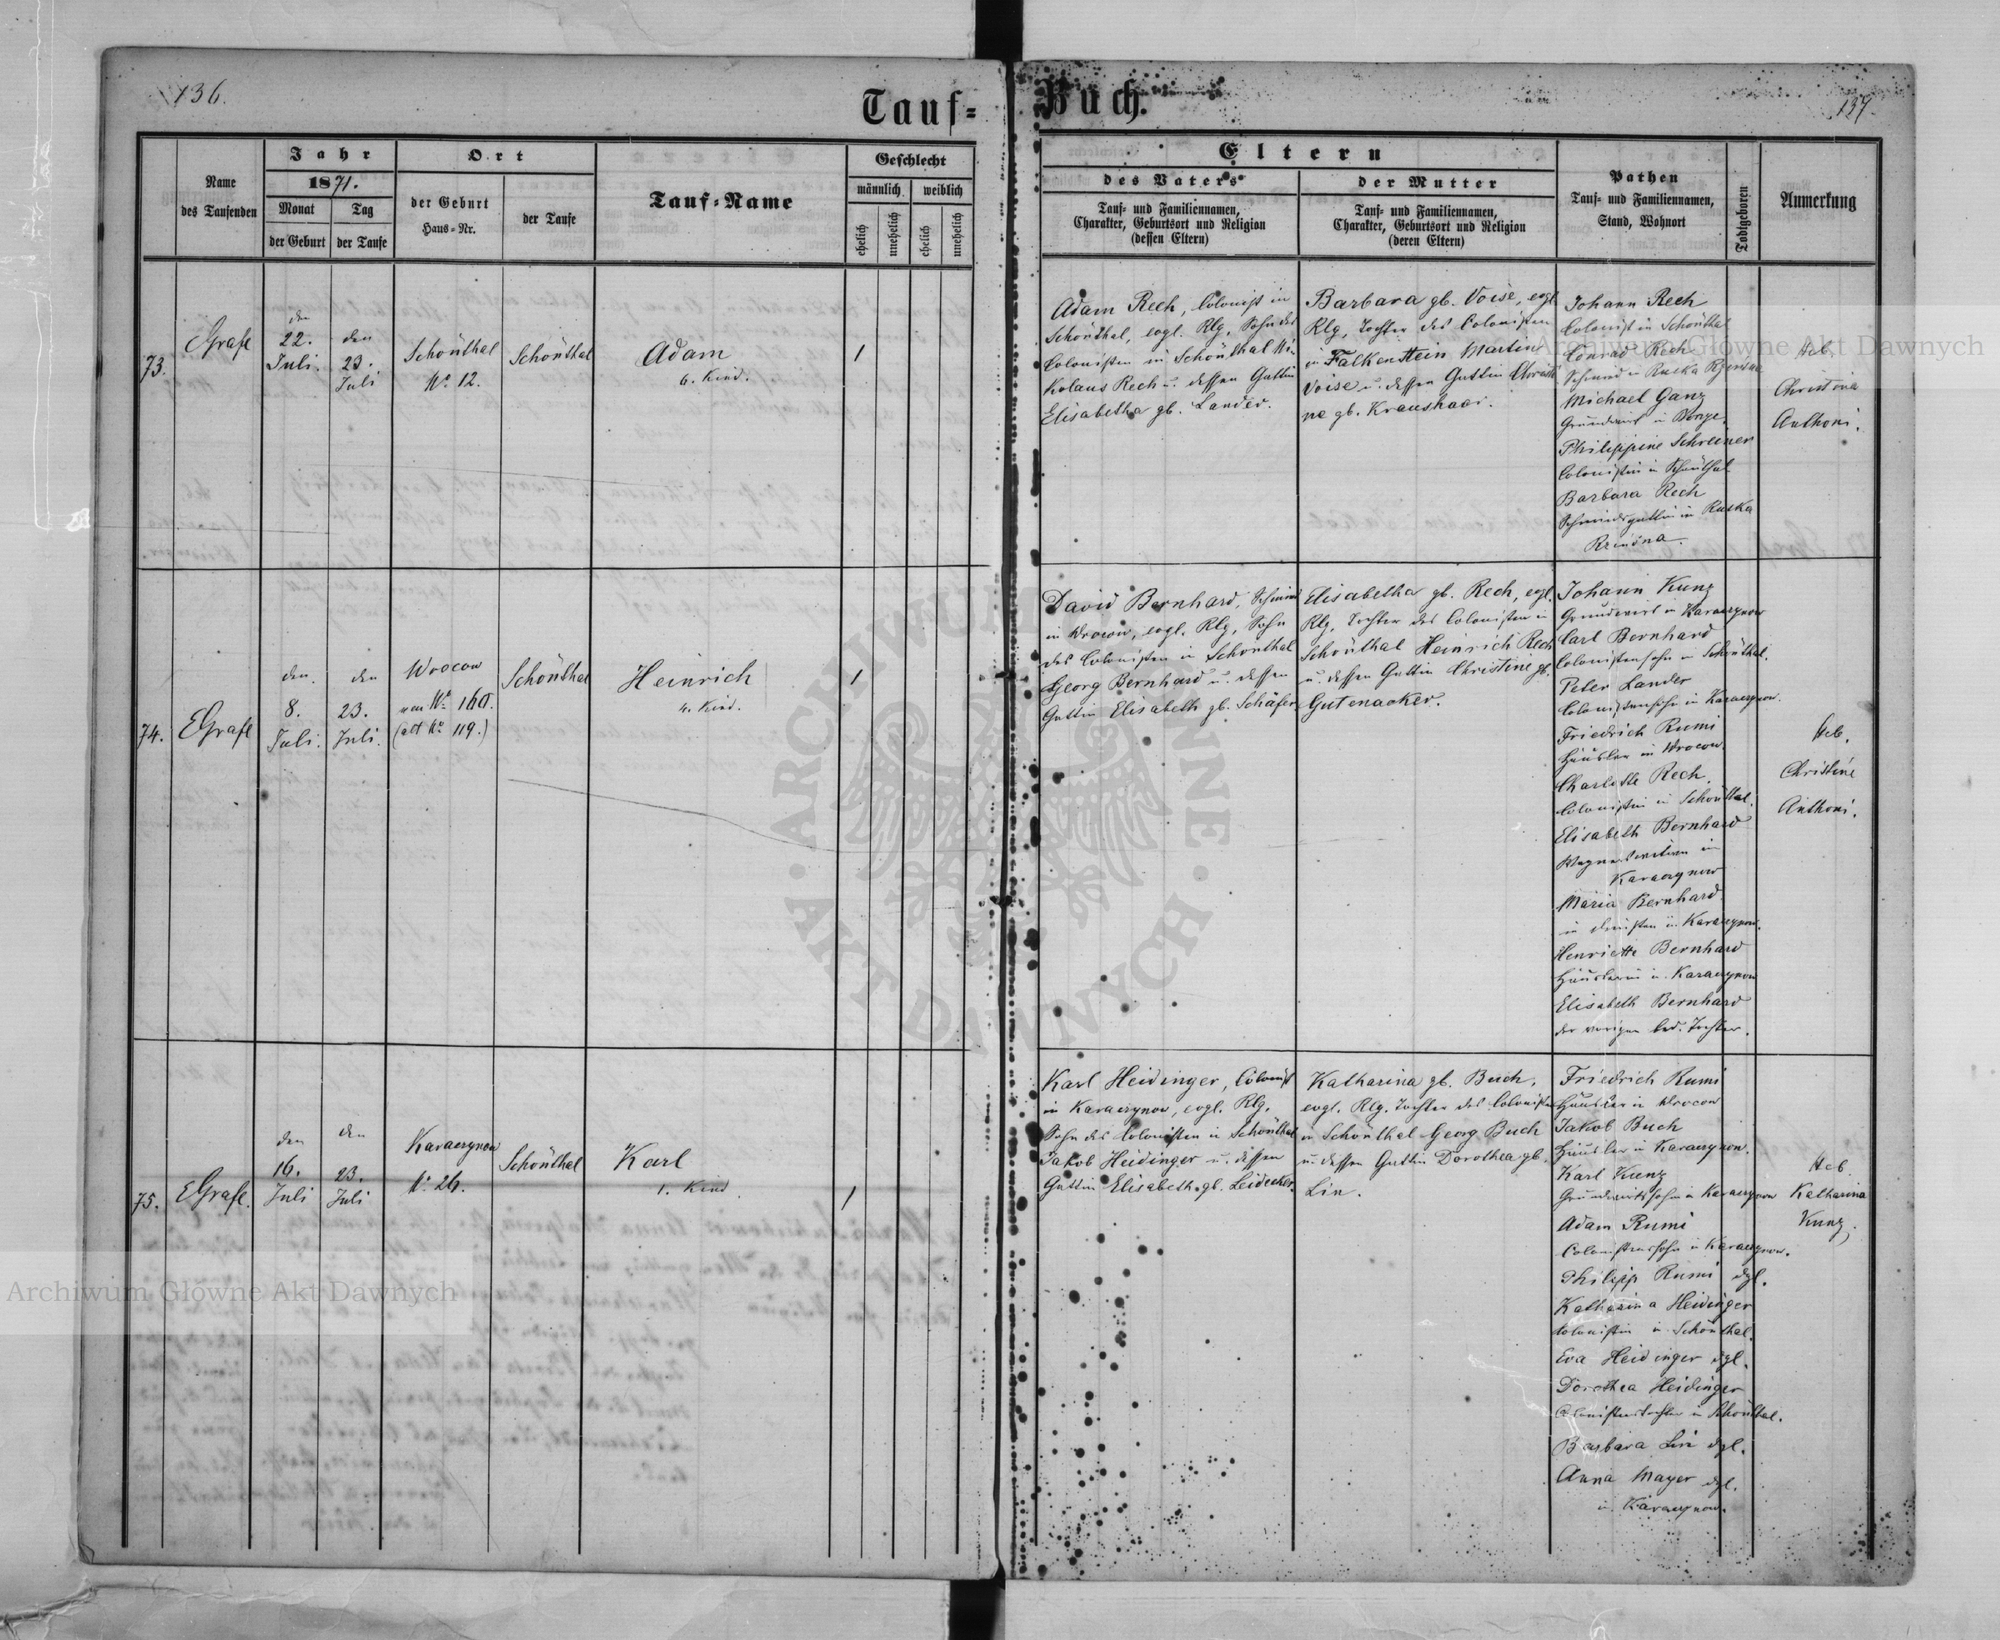 136.
Tauf-
Name
des Taufenden
Jahr
1871.
Monat
der Geburt
Tag
der Taufe
Ort
der Geburt
Haus-Nr.
der Taufe
Tauf-Name
Geschlecht
männlich
weiblich
ehelich
unehelich
ehelich
unehelich
73.
EGrafe
den
22.
Juli.
den
23.
Juli
Schönthal
No 12.
Schönthal
Adam
6. Kind.
1
74.
EGrafe
den.
8.
Juli.
den
23.
Juli.
Wrocow
neu No 160.
(alt No 119.)
Schönthal
Heinrich
4. Kind.
1
75.
EGrafe.
den
16.
Juli
den
23.
Juli
Karaczynow
No 26.
Schönthal
Karl
1. Kind.
1
Buch.
137.
Eltern
des Vaters
Tauf- und Familiennamen,
Charakter, Geburtsort und Religion
(dessen Eltern)
der Mutter
Tauf- und Familiennamen,
Charakter, Geburtsort und Religion
(deren Eltern)
Pathen
Tauf- und Familiennamen,
Stand, Wohnort
Todtgeboren
Anmerkung
Adam Rech, Colonist in
Schönthal, evgl. Rlg, Sohn des
Colonisten in Schönthal Ni-
kolaus Rech u. dessen Gattin
Elisabetha gb. Lander.
Barbara gb. Voise, evgl
Rlg, Tochter des Colonisten
in Falkenstein Martin
Voise u. dessen Gattin
gb. Kraushaar.
Johann Rech
Colonist in Schönthal
Conrad Rech
Schmied in Ruska
Michael Ganz
Grundwirt in
Philippine Schreiner
Colonistin in Schönthal
Barbara Rech
Schmiedsgattin in Ruska
Heb.
Christina
Anthoni.
David Bernhard, Schmied
in Wrocow, evgl. Rlg, Sohn
des Colonisten in Schönthal
Georg Bernhard u. dessen
Gattin Elisabeth gb. Schäfer
Elisabetha gb. Rech, evgl.
Rlg, Tochter des Colonisten in
Schönthal Heinrich Rech
u. dessen Gattin Christine gb.
Gutenacker.
Johann Kunz
Grundwirt in Karaczynow
Carl Bernhard
Colonistensohn in Schönthal.
Peter Lander
Colonistensohn in Karaczynow.
Friedrich Rumi
Häusler in Wrocow.
Charlotte Rech
Colonistin in Schönthal.
Elisabeth Bernhard
Wagnerswitwe in
Karaczynow
Maria Bernhard
in Karaczynow.
Henriette Bernhard
Häuslerin in Karaczynow
Elisabeth Bernhard
der vorigen led. Tochter.
Heb.
Christine
Anthoni.
Karl Heidinger, Colonist
in Karaczynow, evgl. Rlg.
Sohn des Colonisten in Schönthal
Jakob Heidinger u. dessen
Gattin Elisabeth gb. Leidecker.
Katharina gb. Buch,
evgl. Rlg. Tochter des Colonisten
in Schönthal Georg Buch
u. dessen Gattin Dorothea gb.
Lin.
Friedrich Rumi
Häusler in Wrocow
Jakob Buch
Häusler in Karaczynow.
Karl Kunz
Grundwirtssohn in Karaczynow
Adam Rumi
Colonistensohn in Karaczynow.
Philipp Rumi dgl.
Katharina Heidinger
Colonistin in Schönthal.
Eva Heidinger dgl.
Dorothea Heidinger
Colonistentochter in Schönthal.
Barbara Lin dgl.
Anna Mayer dgl.
in Karaczynow.
Heb.
Katharina
Kunz,
Archiwum Główne Akt Dawnych
Archiwum Główne Akt Dawnych
ARCHIWUM GŁÓWNE · AKT DAWNYCH ·